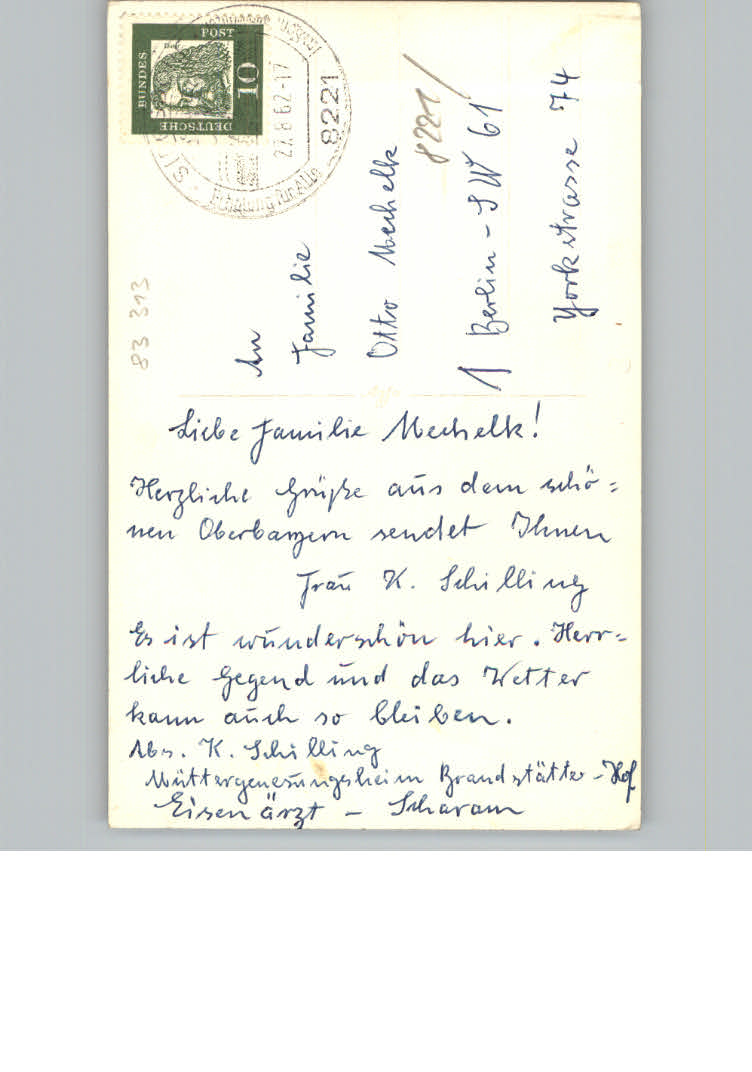 DEUTSCHE
BUNDES
POST
10
27.8.62-17
8221
8221
83 313
An
Familie
Otto Mechelk
1 Berlin - SW 61
Yorkstrasse 74
Liebe Familie Mechelk!
Herzliche Grüße aus dem schö=
nen Oberbayern sendet Ihnen
Frau K. Schilling
Es ist wunderschön hier. Herr=
liche Gegend und das Wetter
kann auch so bleiben.
Abs. K. Schilling
Müttergenesungsheim Brandstätter-Hof
Eisenärzt - Scharam